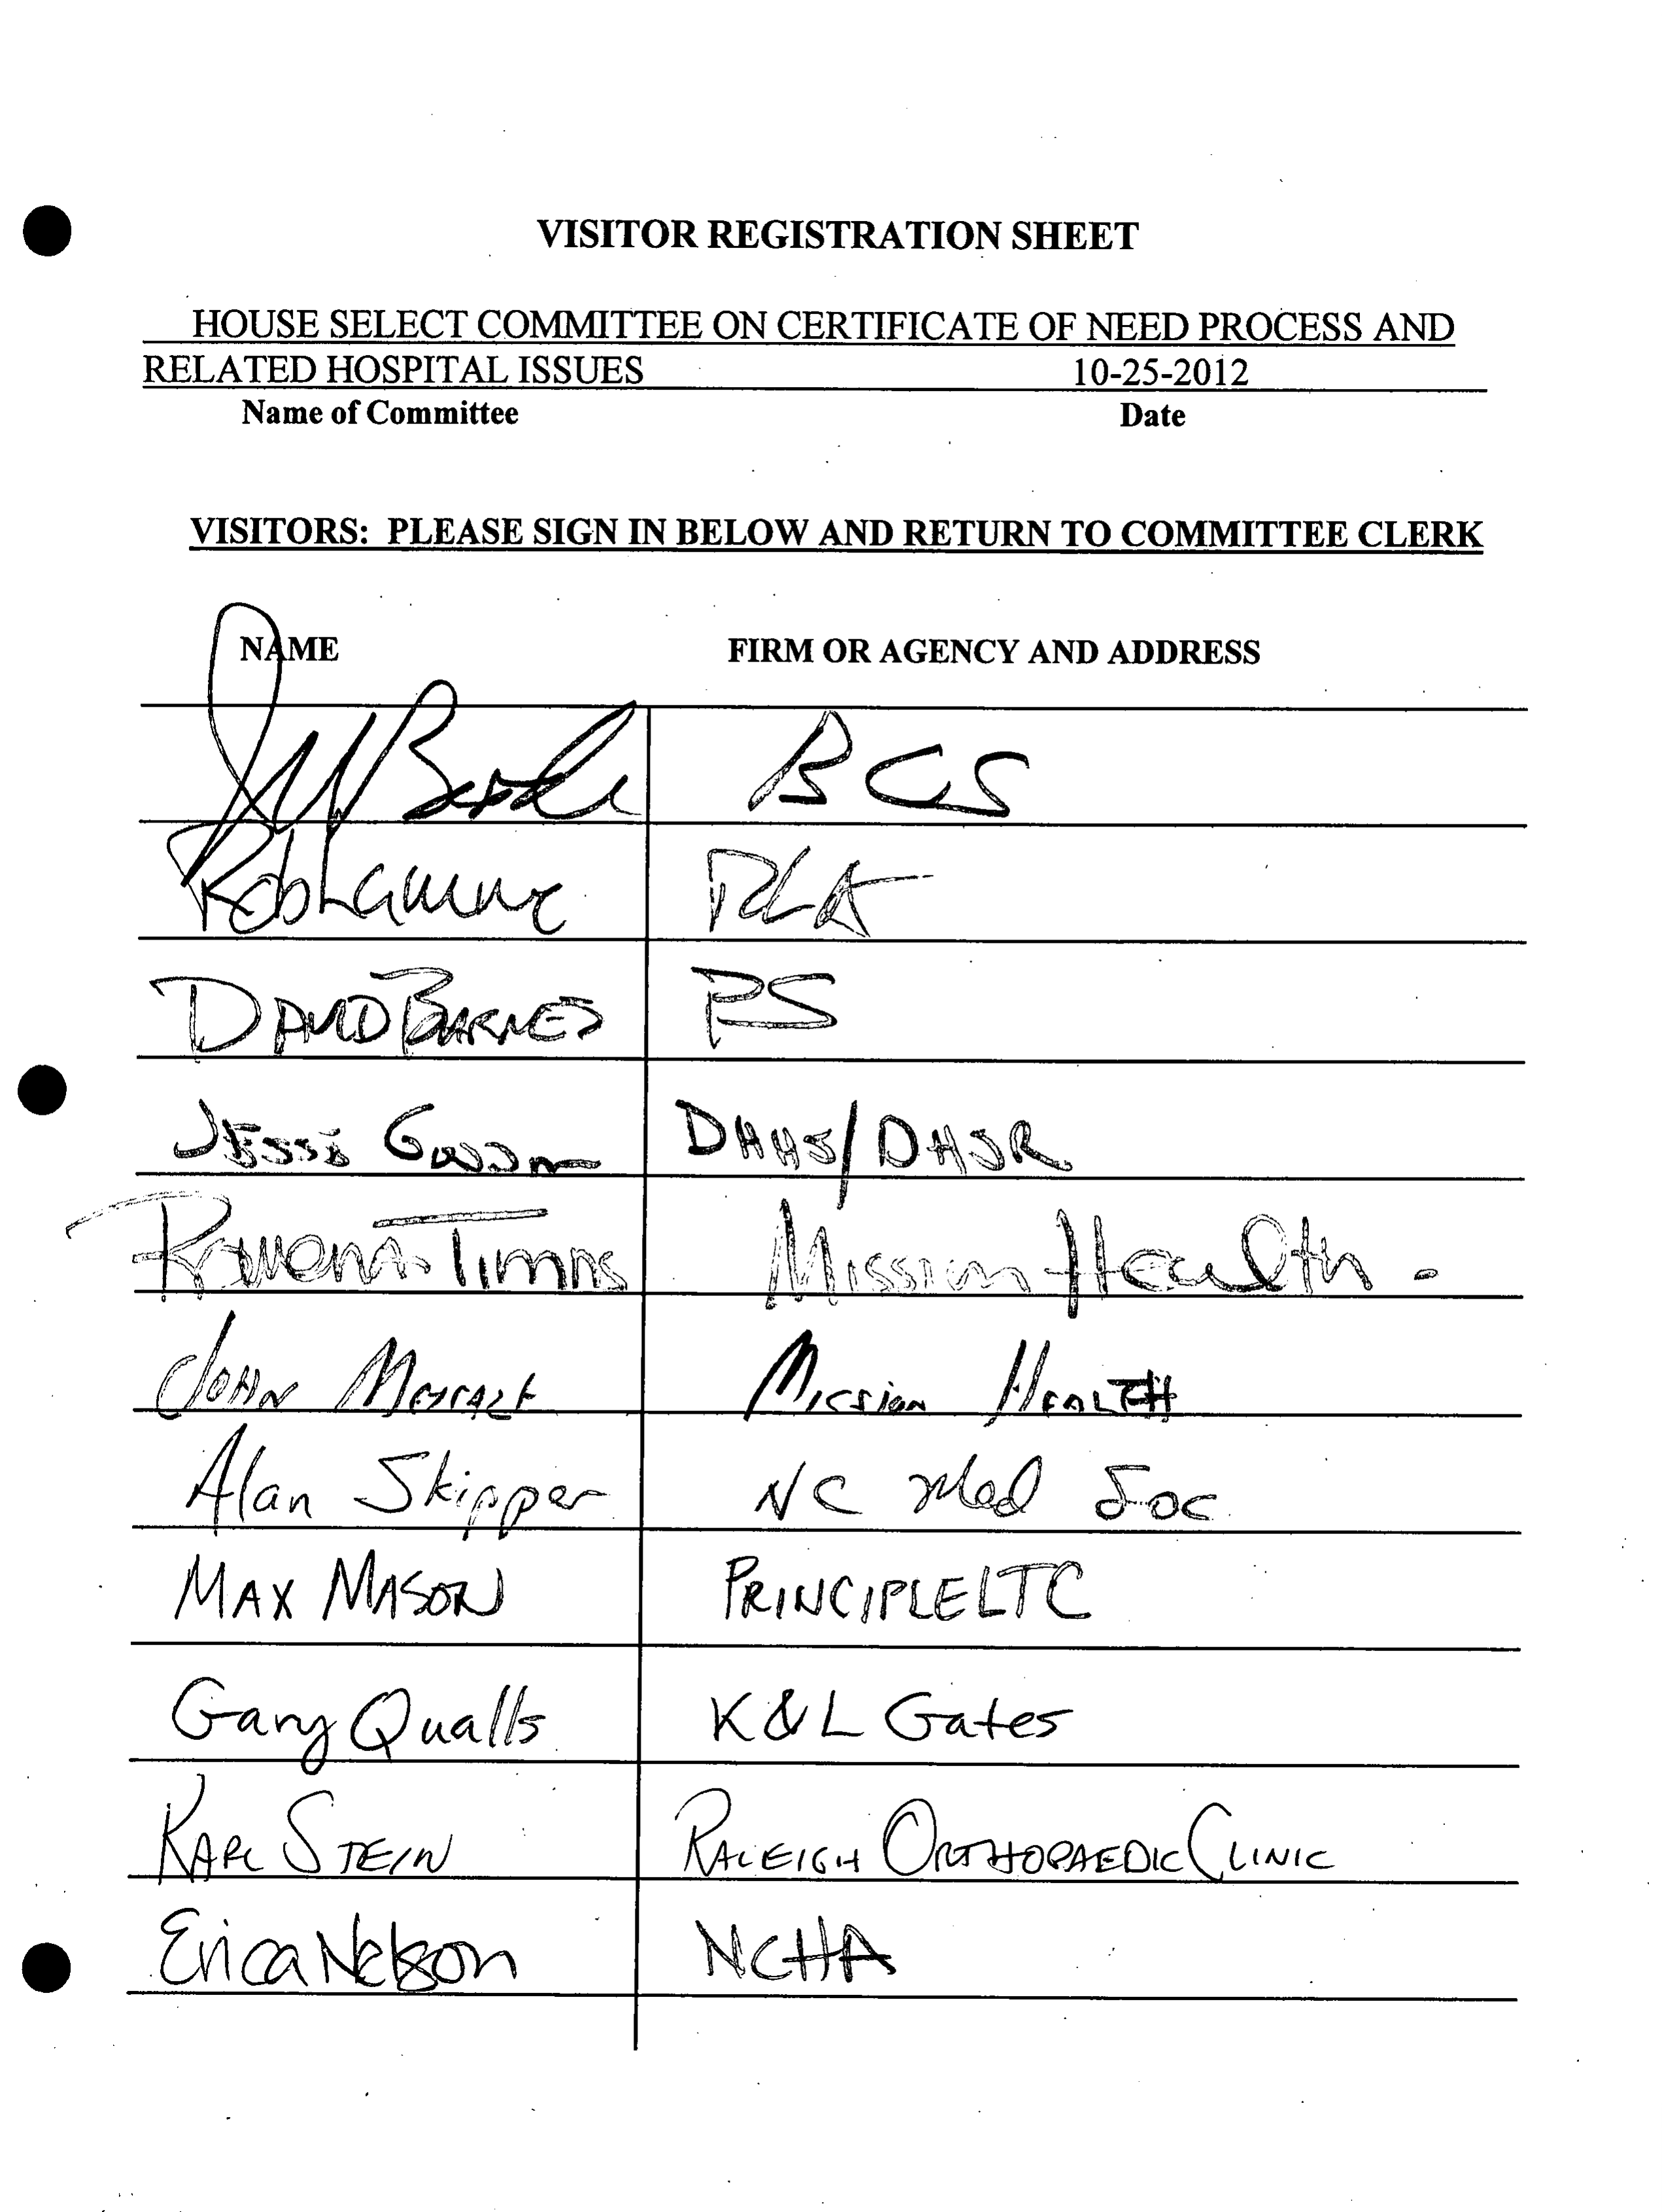 VISITOR REGISTRATION SHEET
HOUSE SELECT COMMITTEE ON CERTIFICATE OF NEED PROCESS AND
RELATED HOSPITAL ISSUES 10-25-2012
Name of Committee Date
VISITORS: PLEASE SIGN IN BELOW AND RETURN TO COMMITTEE CLERK
NAME FIRM OR AGENCY AND ADDRESS
BCS
Rob Lamme RLA
DAVID BARNES PS
JESSE DHHS/DHSR
Rowena Timms Mission Health -
JOHN Mission HEALTH
Alan Skipper NC Med Soc
MAX MASON PRINCIPLELTC
Gary Qualls K&L Gates
KARL STEIN RALEIGH ORTHOPAEDIC CLINIC
Erica Nelson NCHA